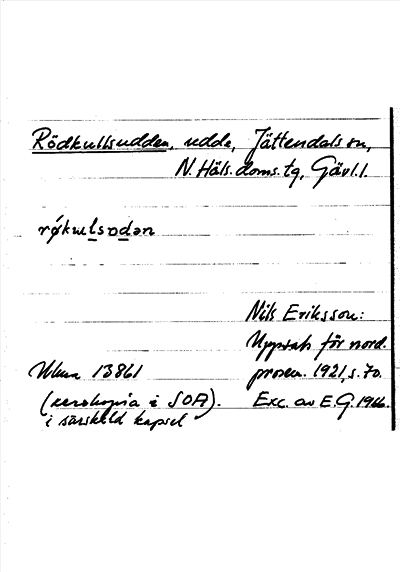 Rödkullsudden, udde, Jättendals sn,
N. Häls. doms. tg, Gävl. l.
rǿkulsodən
Nils Eriksson:
Uppsats för nord.
Ulma 13861 prosem. 1921, s. 70.
(xerokopia i SOA). Exc. av E.G. 1966.
i särskild kapsel